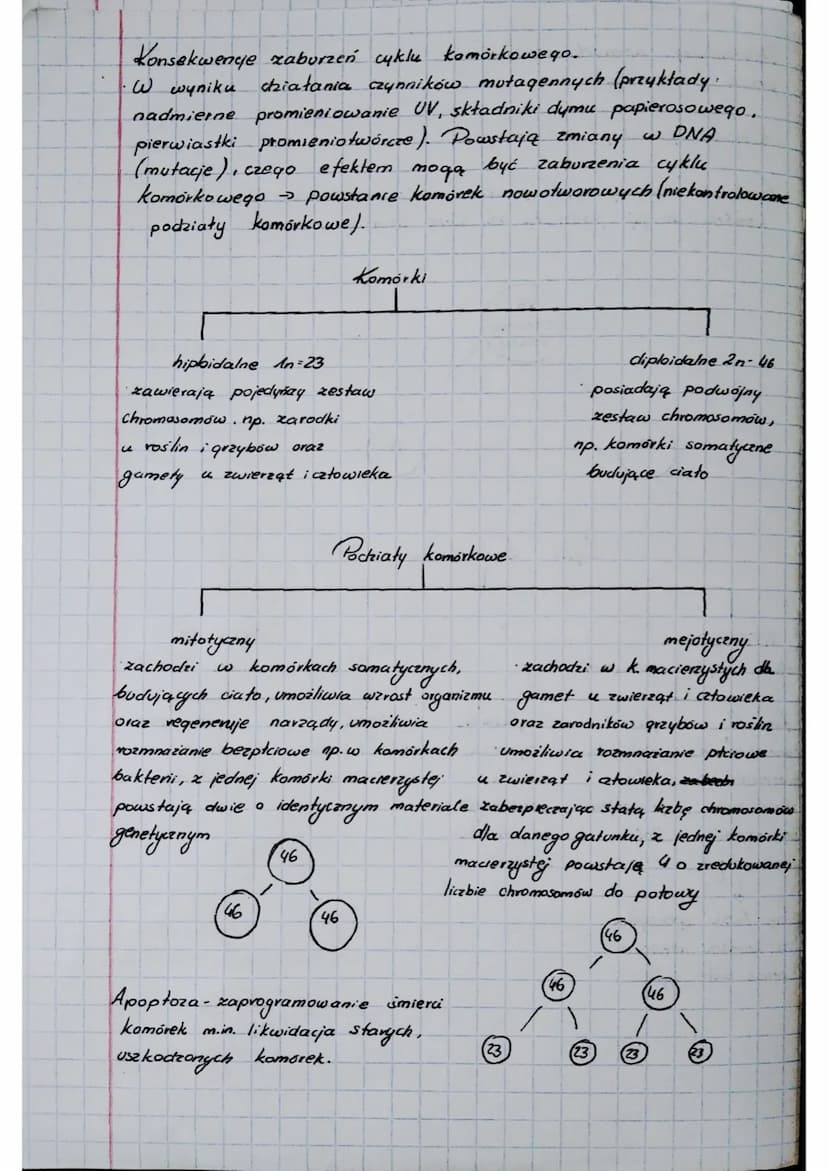 Konsekwencje zaburzeń cyklu komórkowego.
· W wyniku działania czynników mutagennych (przykłady:
nadmierne promieniowanie UV, składniki dymu papierosowego,
pierwiastki promieniotwórcze). Powstają zmiany w DNA
(mutacje), czego efektem mogą być zaburzenia cyklu
komórkowego → powstanie komórek nowotworowych (niekontrolowane
podziały komórkowe).
Komórki
hiploidalne 1n=23
· zawierają pojedyńszy zestaw
chromosomów. np. zarodki
u roślin i grzybów oraz
gamety u zwierząt i człowieka
diploidalne 2n-46
· posiadają podwójny
zestaw chromosomów,
np. komórki somatyczne
budujące ciało
Podziały komórkowe
mitotyczny
· zachodzi w komórkach somatycznych,
budujących ciało, umożliwia wzrost organizmu
oraz regeneruje narządy, umożliwia
rozmnażanie bezpłciowe np. w komórkach
bakterii, z jednej komórki macierzystej
powstają dwie o identycznym materiale
genetycznym
46
46
46
mejotyczny
· zachodzi w k. macierzystych dla
gamet u zwierząt i człowieka
oraz zarodników grzybów i roślin
· umożliwia rozmnażanie płciowe
u zwierząt i człowieka,
zabezpieczając stałą liczbę chromosomów
dla danego gatunku, z jednej komórki
macierzystej powstają 4 o zredukowanej
liczbie chromosomów do połowy
46
46
46
23
23
23
23
Apoptoza - zaprogramowanie śmierci
komórek m.in. likwidacja starych,
uszkodzonych komórek.